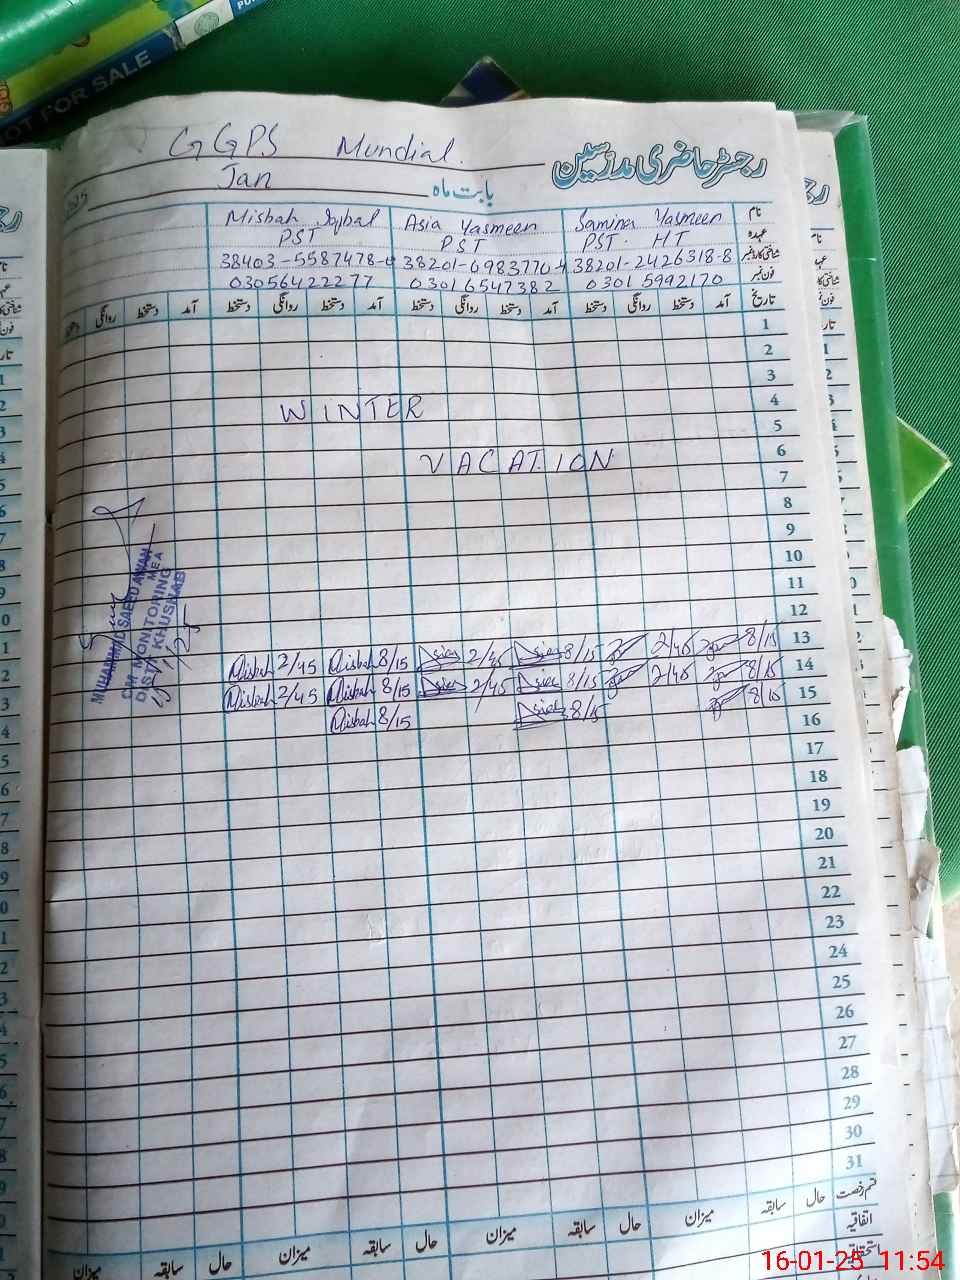 NOT FOR SALE
GGPS Mundial.
رجسٹر حاضری مدرسین
Jan
بابت ماہ
نام
Misbah Iqbal Asia Yasmeen Samina Yasmeen
عہدہ
PST PST PST. HT
شناختی کارڈ نمبر
38201-2426318-8
فون نمبر
03056422277 03016547382 03015992170
تاریخ آمد دستخط روانگی دستخط آمد دستخط روانگی دستخط آمد دستخط روانگی دستخط
1
2
3
4
WINTER
5
6
VACATION
7
8
9
10
11
12
13
8/15 2/45 8/15 Asia 2/45 Asia Misbah 8/15 Misbah 2/45
14
8/15 2/45 8/15 Asia 2/45 Asia Misbah 8/15 Misbah 2/45
15
8/15 Asia 8/15 Misbah 8/15
16
17
18
19
20
21
22
23
24
25
26
27
28
29
30
31
قسم رخصت حال سابقہ میزان حال سابقہ میزان حال سابقہ میزان حال سابقہ میزان
اتفاقیہ
استحقاقیہ
MUHAMMAD SAEED AWAN
CM MONITORING MEA
DIST: KHUSHAB
16-01-25 11:54